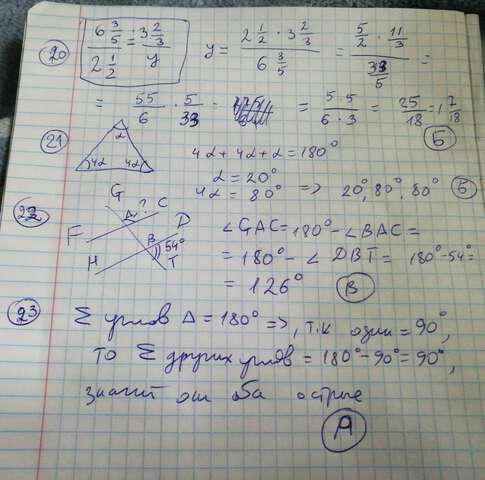 20 (6 3/5)/(2 1/2) = (3 2/3)/y y = (2 1/2 · 3 2/3)/(6 3/5) = (5/2 · 11/3)/(33/5) =
= 55/6 · 5/33 · = (5·5)/(6·3) = 25/18 = 1 7/18
Б
21 α 4α 4α 4α + 4α + α = 180°
α = 20°
4α = 80° => 20°, 80°, 80° Б
22 G A ? C F D H B 54° T ∠GAC = 180° - ∠BAC =
= 180° - ∠ DBT = 180° - 54° =
= 126° В
23 Σ углов Δ = 180° =>, т.к один = 90°,
то Σ других углов = 180° - 90° = 90°,
значит они оба острые
А